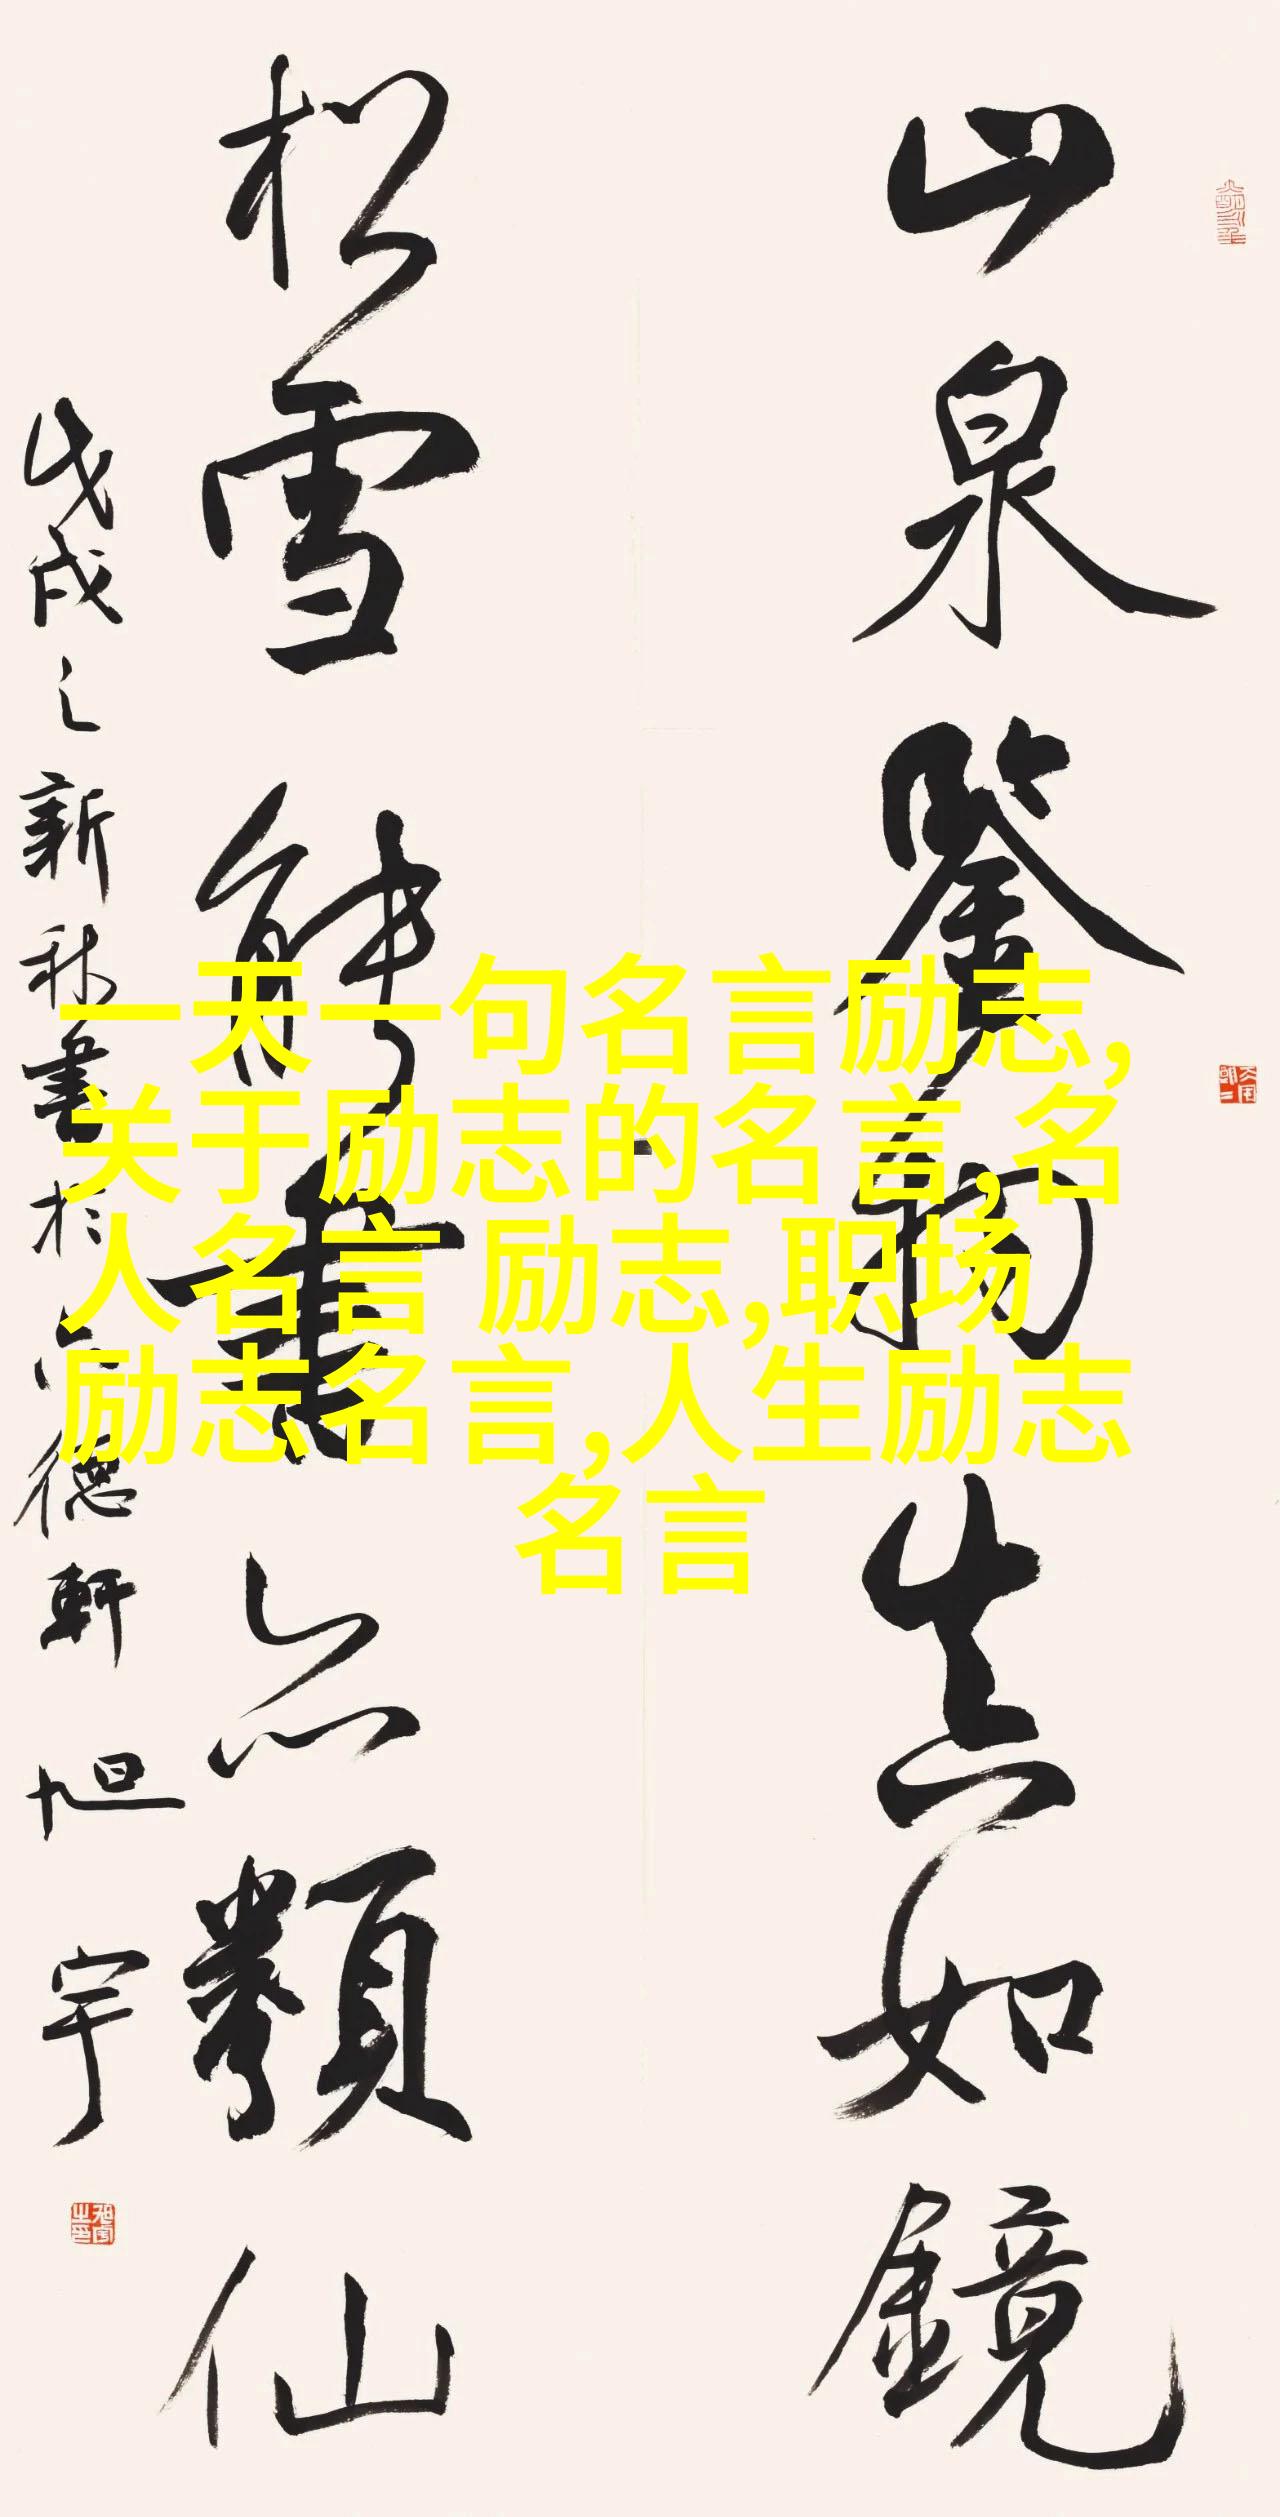 山泉鑒物真如鏡
松雪解
亦類仙
戊戌之新秋書於
德軒
旭宇
一天一句名言励志,
关于励志的名言,名
人名言 励志,职场
励志名言,人生励志
名言